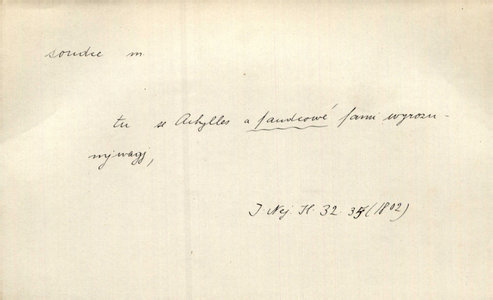 soudce m
tu se Achylles a saudcowé sami wyrozu-
mjwagj,
J. Nej. H. 32. 35 (1802)